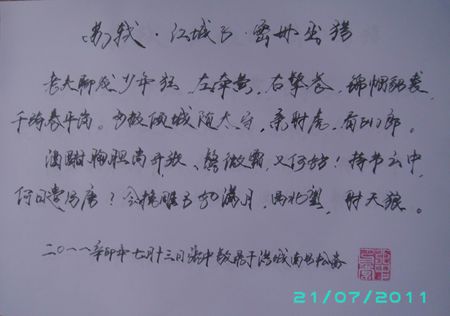 苏轼·江城子·密州出猎
老夫聊发少年狂，左牵黄，右擎苍，锦帽貂裘，
千骑卷平岗。为报倾城随太守，亲射虎，看孙郎。
酒酣胸胆尚开张，鬓微霜，又何妨！持节云中，
何日遣冯唐？会挽雕弓如满月，西北望，射天狼。
二〇一一辛卯年七月十三日
21/07/2011